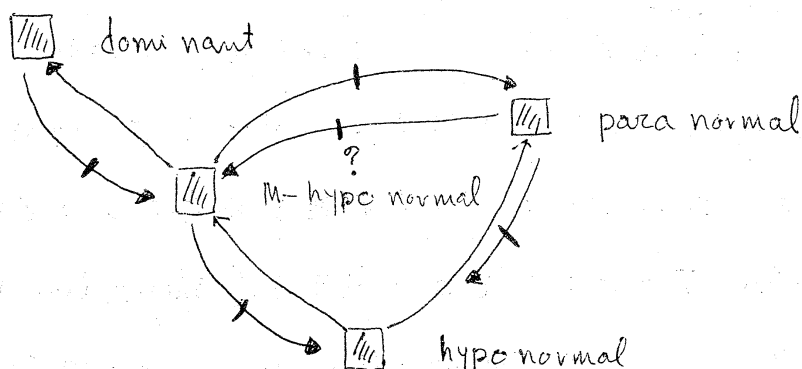 dominant
para normal
?
M-hypo normal
hypo normal